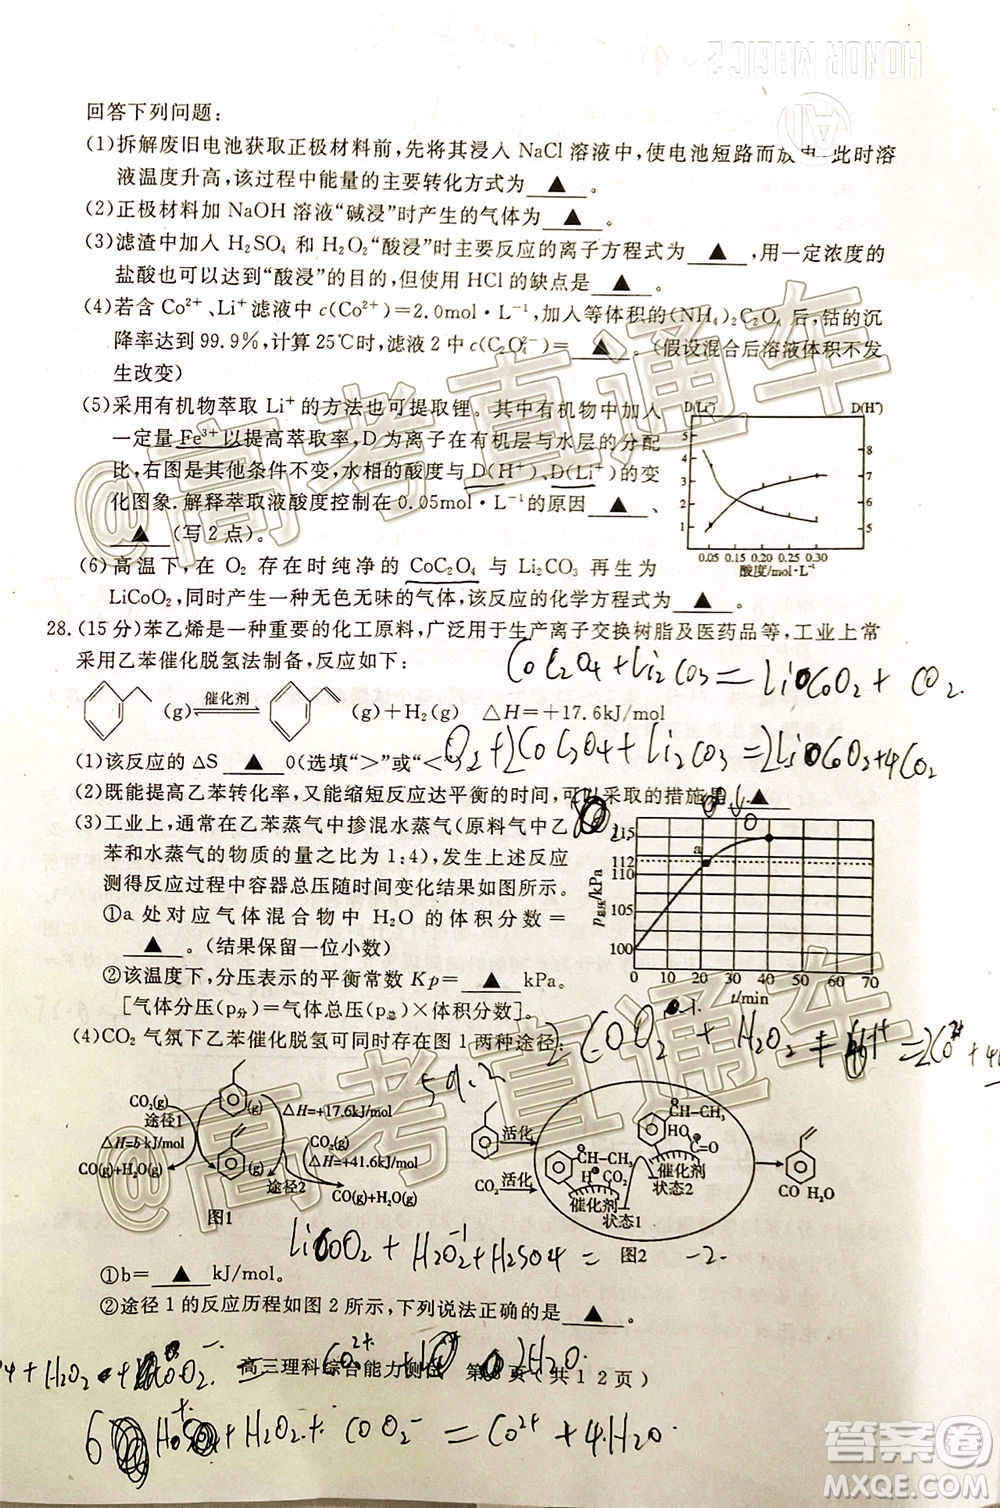 HONOR MAGIC 2
AI
回答下列问题：
(1)拆解废旧电池获取正极材料前,先将其浸入 NaCl 溶液中,使电池短路而放电,此时溶
液温度升高,该过程中能量的主要转化方式为 ▲ 。
(2)正极材料加 NaOH 溶液“碱浸”时产生的气体为 ▲ 。
(3)滤渣中加入 H₂SO₄ 和 H₂O₂“酸浸”时主要反应的离子方程式为 ▲ ,用一定浓度的
盐酸也可以达到“酸浸”的目的,但使用 HCl 的缺点是 ▲ 。
(4)若含 Co²⁺、Li⁺滤液中 c(Co²⁺)=2.0mol·L⁻¹,加入等体积的(NH₄)₂C₂O₄ 后,钴的沉
降率达到 99.9%,计算 25℃时,滤液 2 中 c(C₂O₄²⁻)= ▲ 。(假设混合后溶液体积不发
生改变)
(5)采用有机物萃取 Li⁺的方法也可提取锂。其中有机物中加入
一定量 Fe³⁺以提高萃取率,D 为离子在有机层与水层的分配
比,右图是其他条件不变,水相的酸度与 D(H⁺)、D(Li⁺)的变
化图象.解释萃取液酸度控制在 0.05mol·L⁻¹的原因 ▲ 、
▲ (写 2 点)。
D(Li⁺) D(H⁺)
5 4 3 2 1
8 7 6 5
0.05 0.10 0.20 0.30
酸度/mol·L⁻¹
(6)高温下,在 O₂ 存在时纯净的 CoC₂O₄ 与 Li₂CO₃ 再生为
LiCoO₂,同时产生一种无色无味的气体,该反应的化学方程式为 ▲ 。
28.(15 分)苯乙烯是一种重要的化工原料,广泛用于生产离子交换树脂及医药品等,工业上常
采用乙苯催化脱氢法制备,反应如下：
CoC₂O₄+Li₂CO₃=LiCoO₂+CO₂.
(g) 催化剂 ⇌ (g)+H₂(g) △H=+17.6kJ/mol
O₂+2CoC₂O₄+Li₂CO₃=2LiCoO₂+4CO₂
(1)该反应的 △S ▲ 0(选填“>”或“<
(2)既能提高乙苯转化率,又能缩短反应达平衡的时间,可以采取的措施是 ▲
(3)工业上,通常在乙苯蒸气中掺混水蒸气(原料气中乙
苯和水蒸气的物质的量之比为 1:4),发生上述反应,
测得反应过程中容器总压随时间变化结果如图所示。
①a 处对应气体混合物中 H₂O 的体积分数=
▲ 。(结果保留一位小数)
②该温度下,分压表示的平衡常数 Kp= ▲ kPa。
[气体分压(p分)=气体总压(p总)×体积分数]。
p总压/kPa
115 112 110 105 100
a
0 10 20 30 40 50 60 70
t/min
(4)CO₂ 气氛下乙苯催化脱氢可同时存在图 1 两种途径：
CO₂(g)
途径1
△H=b kJ/mol
CO(g)+H₂O(g)
(g)
(g)
△H=+17.6kJ/mol
CO₂(g)
△H=+41.6kJ/mol
途径2
CO(g)+H₂O(g)
图1
活化
CO₂ 活化
CH—CH₃
H CO₂
催化剂
状态1
CH—CH₂
HO CO
催化剂
状态2
CO H₂O
图2
LiCoO₂+H₂O₂+H₂SO₄=
①b= ▲ kJ/mol。
②途径 1 的反应历程如图 2 所示,下列说法正确的是 ▲ 。
高三理科综合能力测试 第 8 页(共 12 页)
@高考直通车
@高考直通车
答案圈
MXQE.COM